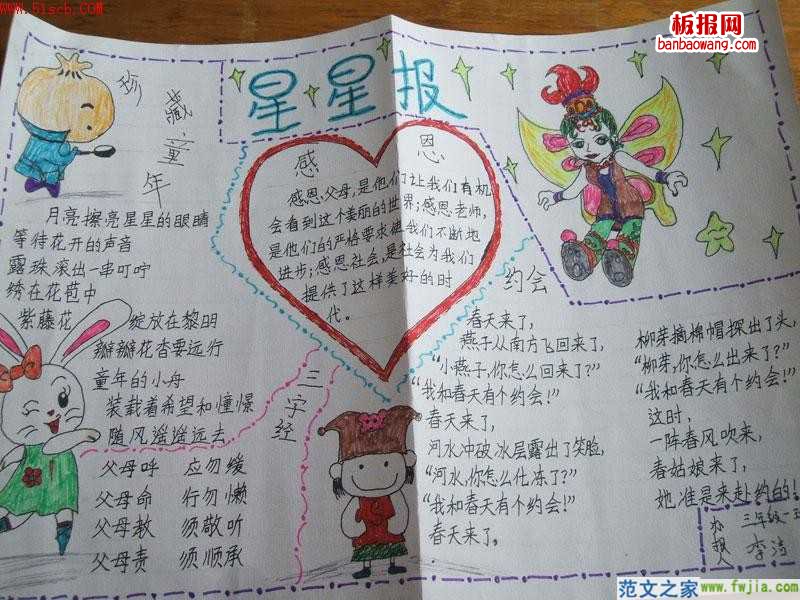 www.51sch.com
板报网
banbaowang.com
星星报
珍藏童年
月亮擦亮星星的眼睛
等待花开的声音
露珠滚出一串叮咛
绣在花苞中
紫藤花 绽放在黎明
瓣瓣花香要远行
童年的小舟
装载着希望和憧憬
随风遥遥远去
感恩
感恩父母,是他们让我们有机
会看到这个美丽的世界;感恩老师,
是他们的严格要求使我们不断地
进步;感恩社会,是社会为我们
提供了这样美好的时
代。
三字经
父母呼 应勿缓
父母命 行勿懒
父母教 须敬听
父母责 须顺承
约会
春天来了,
燕子从南方飞回来了,
“小燕子,你怎么回来了?”
“我和春天有个约会!”
春天来了,
河水冲破冰层露出了笑脸,
“河水,你怎么化冻了?”
“我和春天有个约会!”
春天来了,
柳芽摘棉帽探出了头,
“柳芽,你怎么出来了?”
“我和春天有个约会!”
这时,
一阵春风吹来,
春姑娘来了,
她准是来赴约的!
办报人
三年级一班
李涛
范文之家 www.fwjia.com